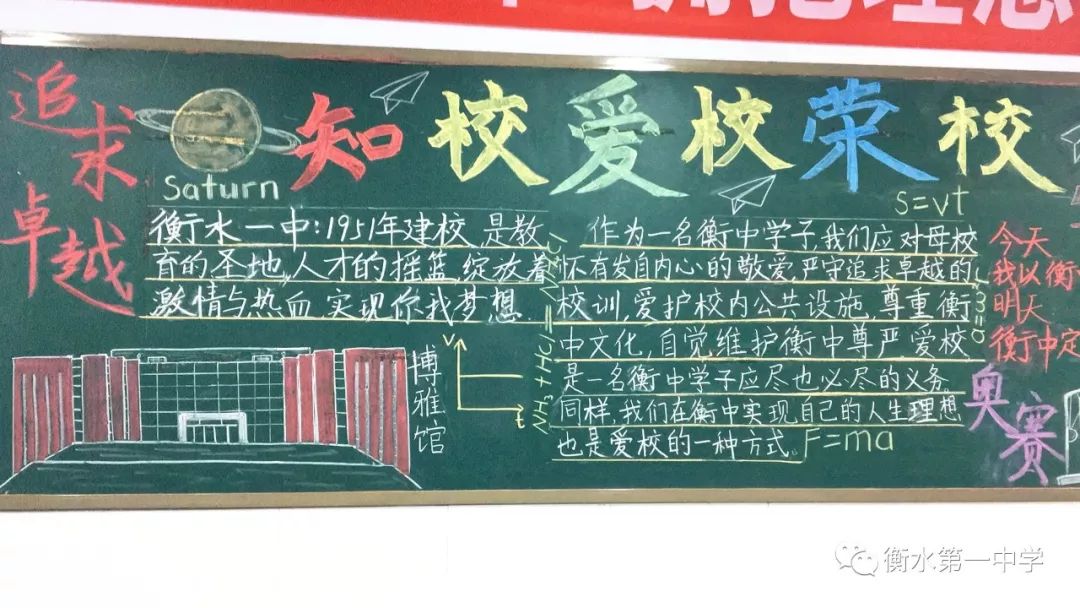 追求
卓越
知校爱校荣校
Saturn
衡水一中:1951年建校,是教
育的圣地,人才的摇篮,绽放着
激情与热血,实现你我梦想.
博雅馆
v
t
作为一名衡中学子,我们应对母校
怀有发自内心的敬爱,严守追求卓越的
校训,爱护校内公共设施,尊重衡
中文化,自觉维护衡中尊严,爱校
是一名衡中学子应尽也必尽的义务。
同样,我们在衡中实现自己的人生理想
也是爱校的一种方式。
F=ma
s=vt
NH₃+HCl=NH₄Cl
今天
我以衡
明天
衡中定
奥赛
衡水第一中学